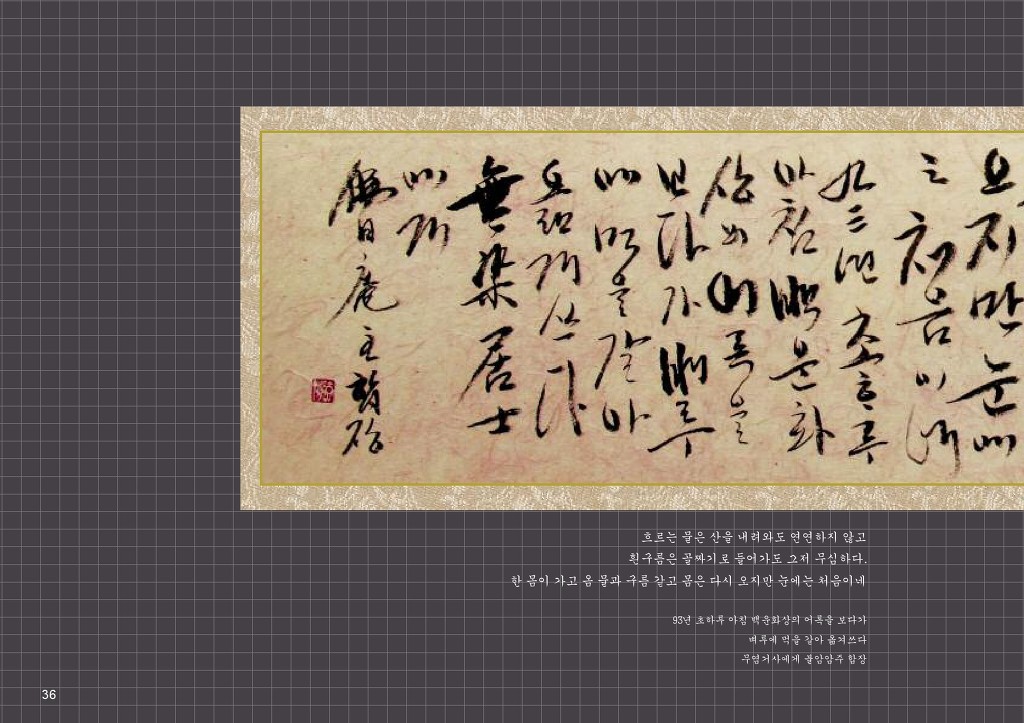 오지만 눈에
는 처음이네
九三년 초하루
아침 백운화
상의 어록을
보다가 벼루
에 먹을 갈아
옮겨 쓰다
無染居士
에게
日庵主
흐르는 물은 산을 내려와도 연연하지 않고
흰구름은 골짜기로 들어가도 그저 무심하다.
한 몸이 가고 옴 물과 구름 같고 몸은 다시 오지만 눈에는 처음이네
93년 초하루 아침 백운화상의 어록을 보다가
벼루에 먹을 갈아 옮겨쓰다
무염거사에게 불암암주 합장
36